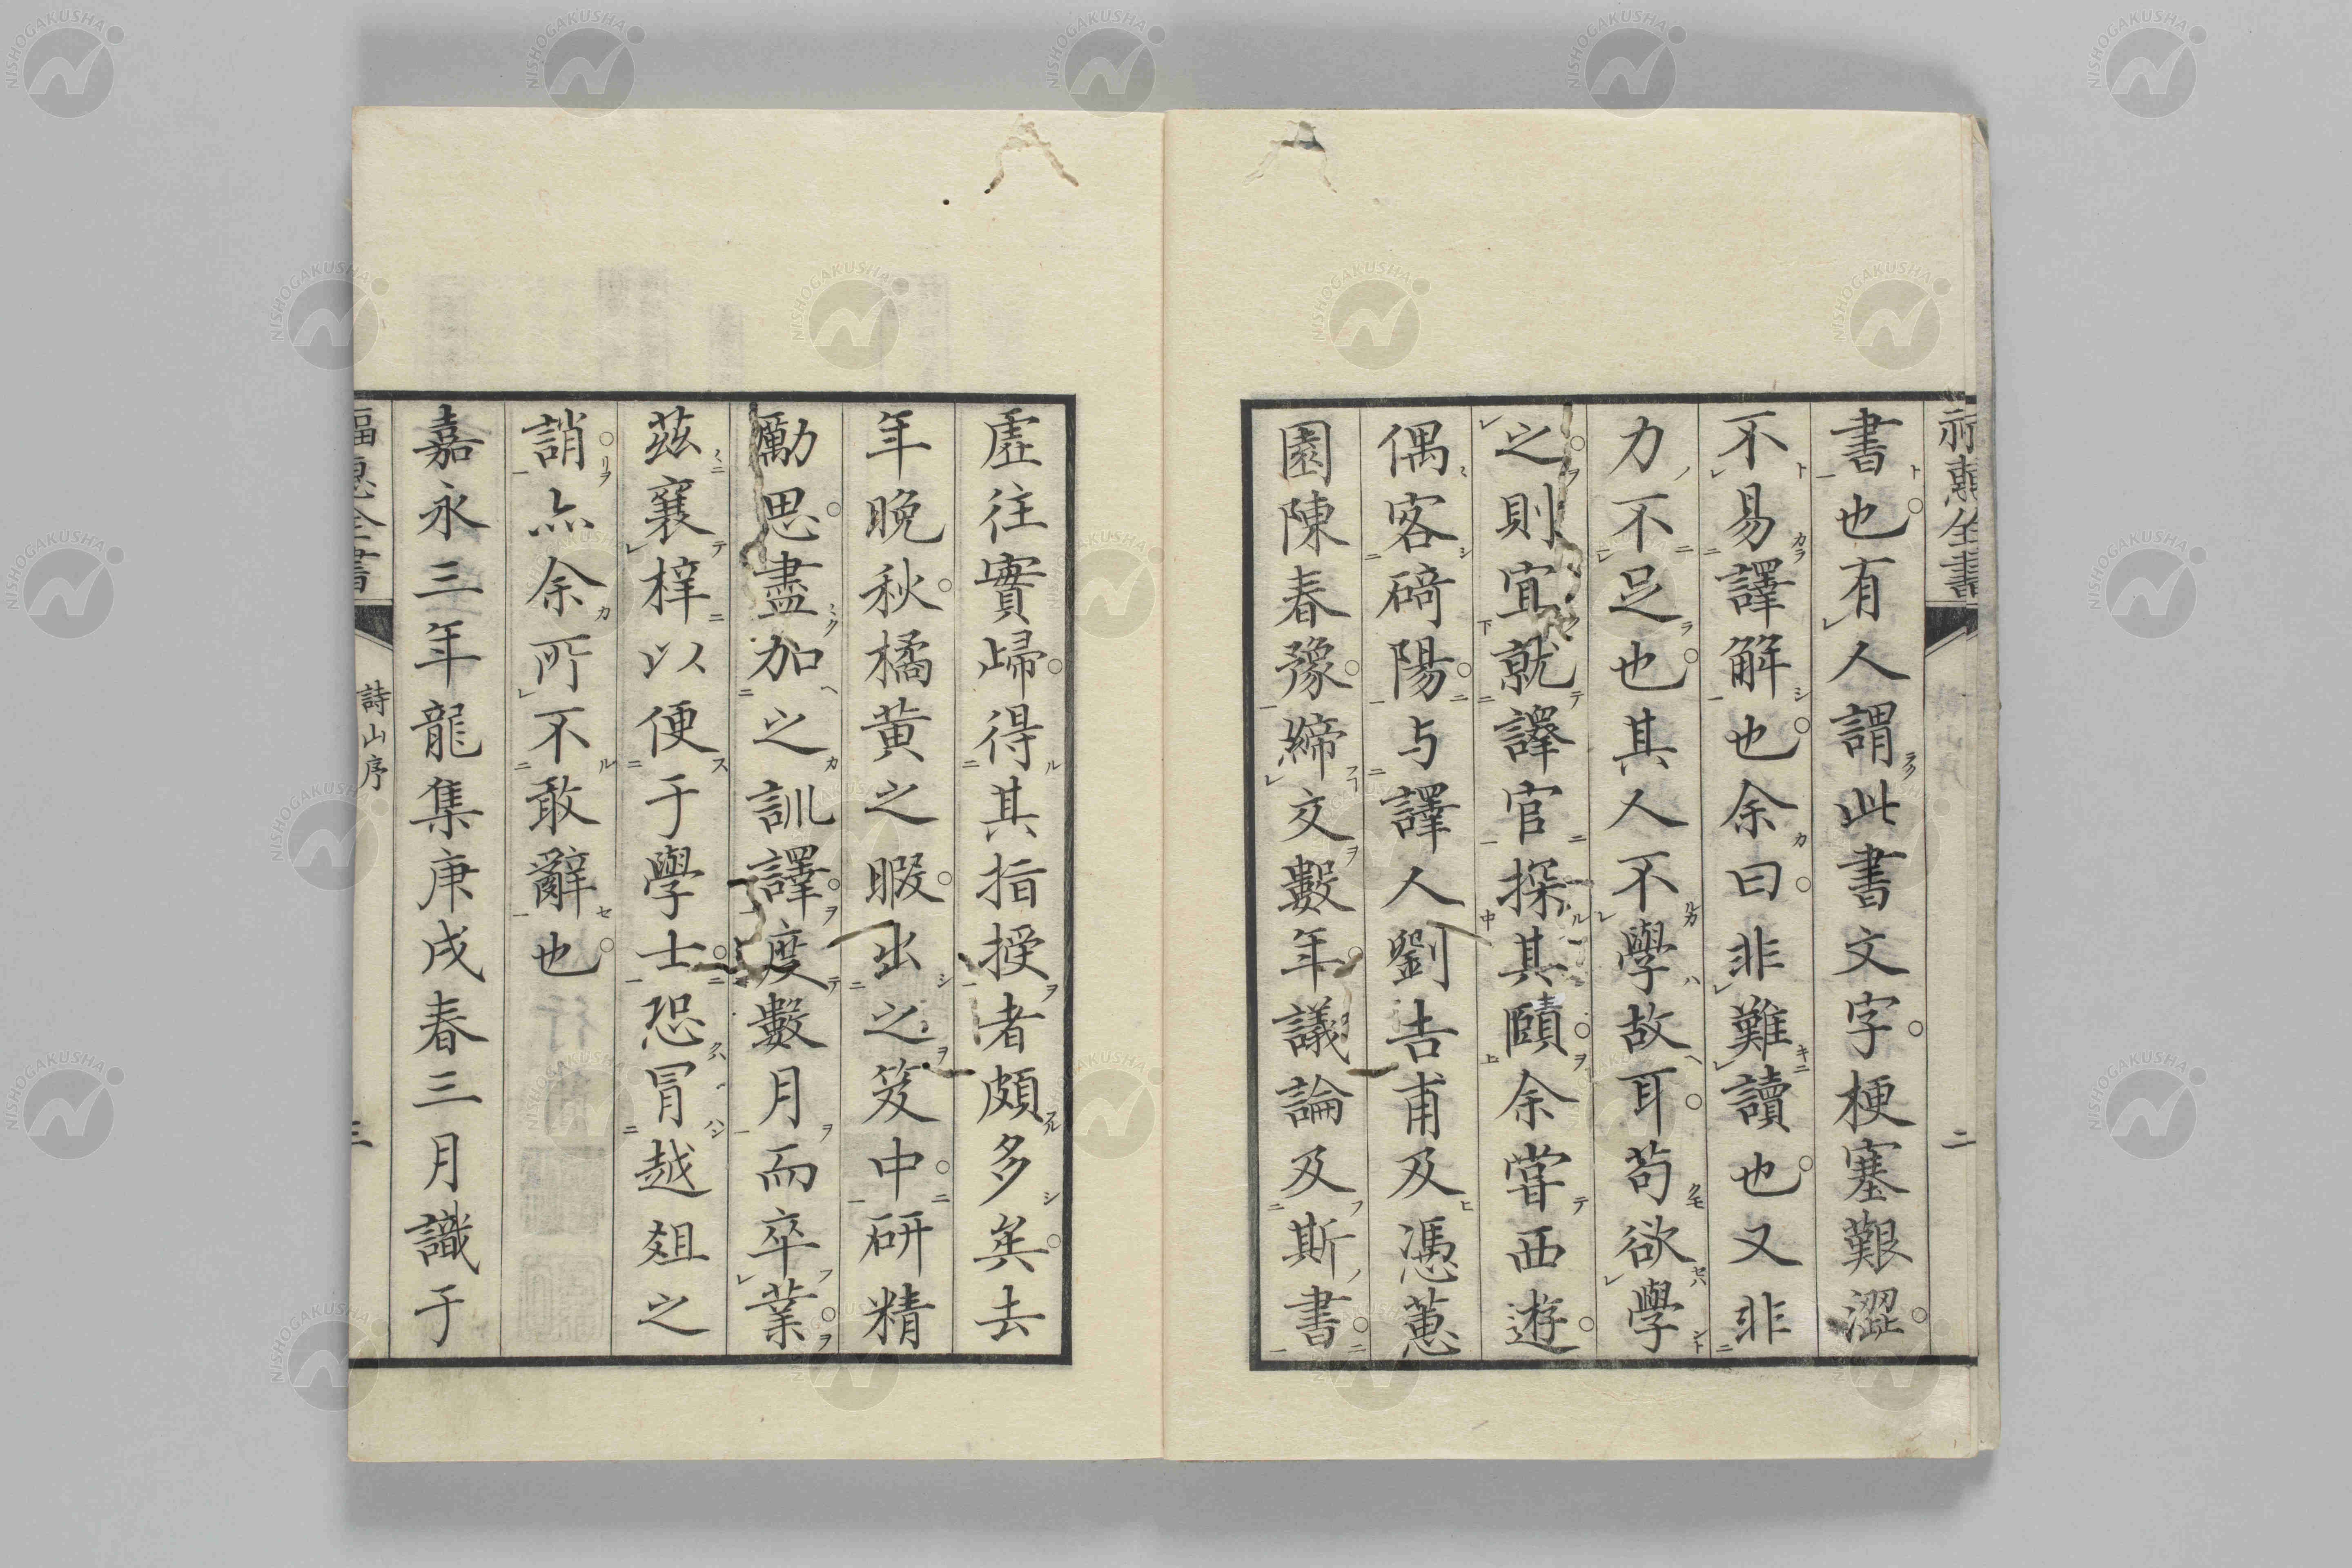 書也有人謂此書文字梗塞艱澀
不易譯解也余曰非難讀也又非
力不足也其人不學故耳苟欲學
之則宜就譯官探其賾余嘗西遊
偶客碕陽与譯人劉吉甫及馮蕙
園陳春豫締交數年議論及斯書
虛往實歸得其指授者頗多矣去
年晚秋橘黄之暇出之笈中研精
勵思盡加之訓譯度數月而卒業
茲襄梓以便于學士恐冒越俎之
誚亦余所不敢辭也
嘉永三年龍集庚戌春三月識于
福惠全書
詩山序
三
二
NISHOGAKUSHA